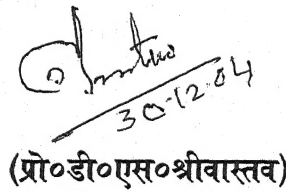 30.12.04
(प्रो०डी०एस०श्रीवास्तव)